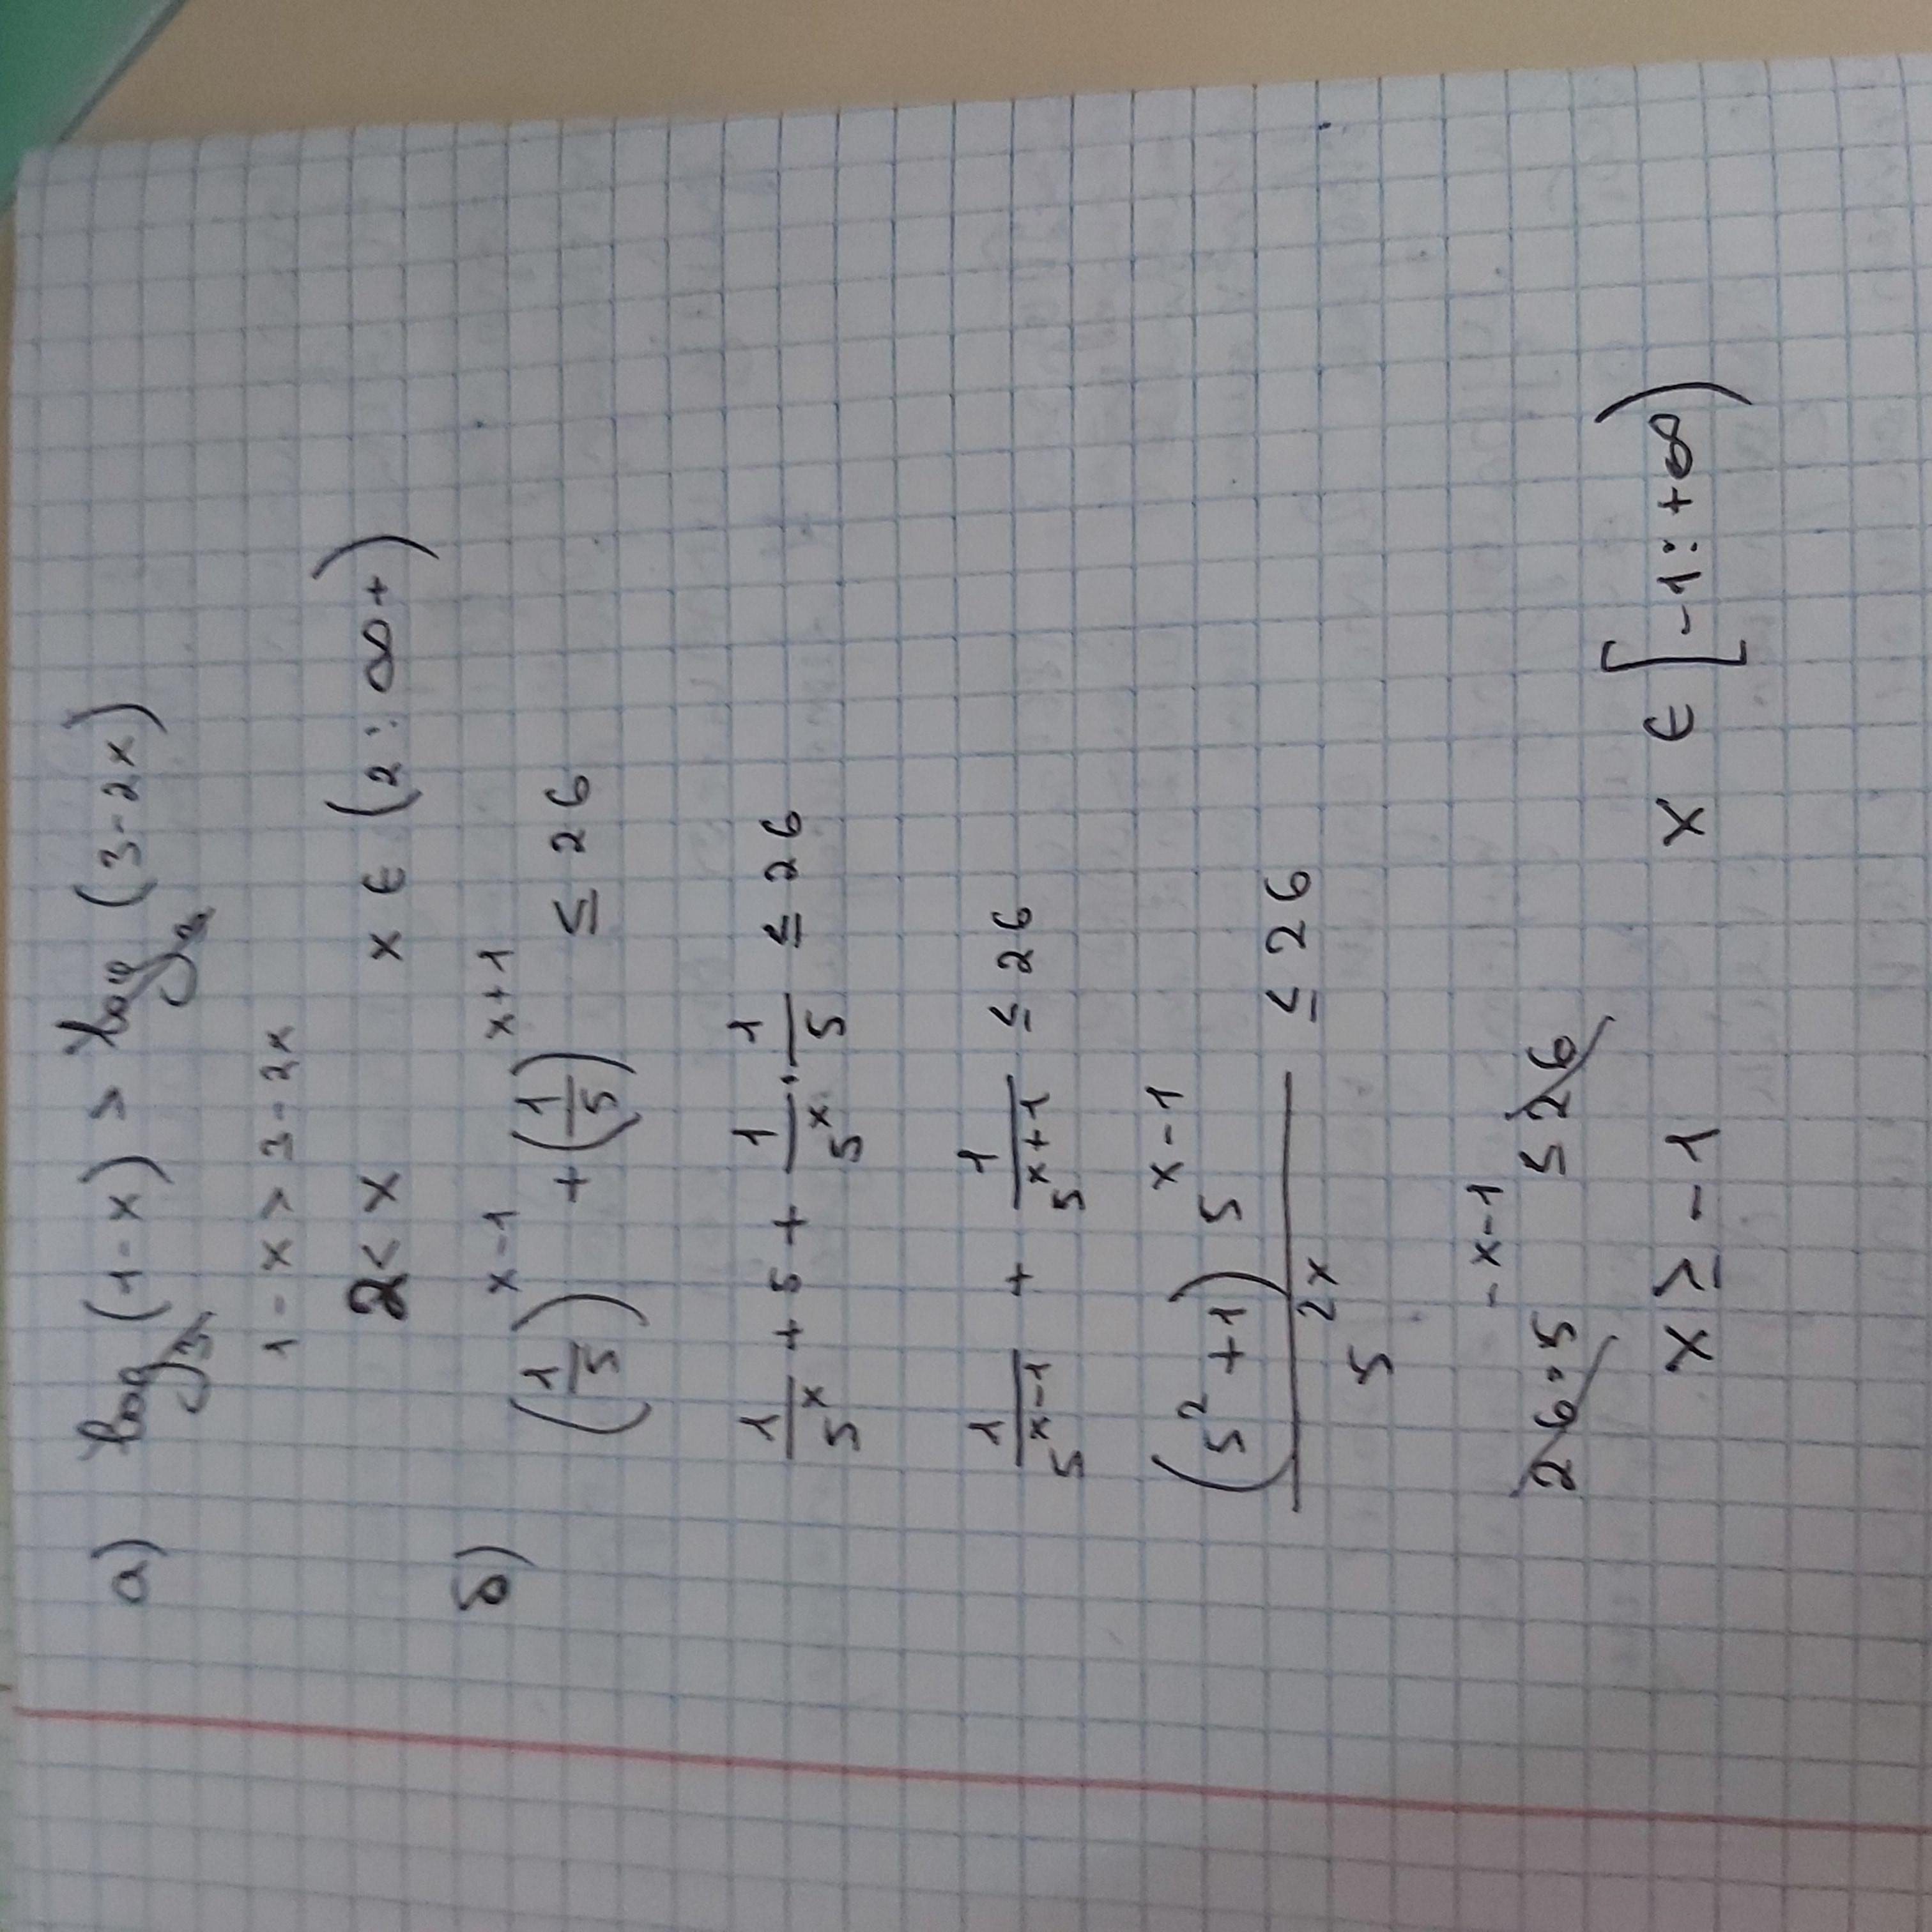 а) log₃(1-x) > log₃(3-2x)
1-x > 3-2x
2 < x x ∈ (2: ∞+)
б) (1/5)^(x-1) + (1/5)^(x+1) ≤ 26
1/5^x + 5 + 1/5^x · 1/5 ≤ 26
1/5^(x-1) + 1/5^(x+1) ≤ 26
((5²+1) 5^(x-1))/5^(2x) ≤ 26
26·5^(-x-1) ≤ 26
x ≥ -1 x ∈ [-1: +∞)